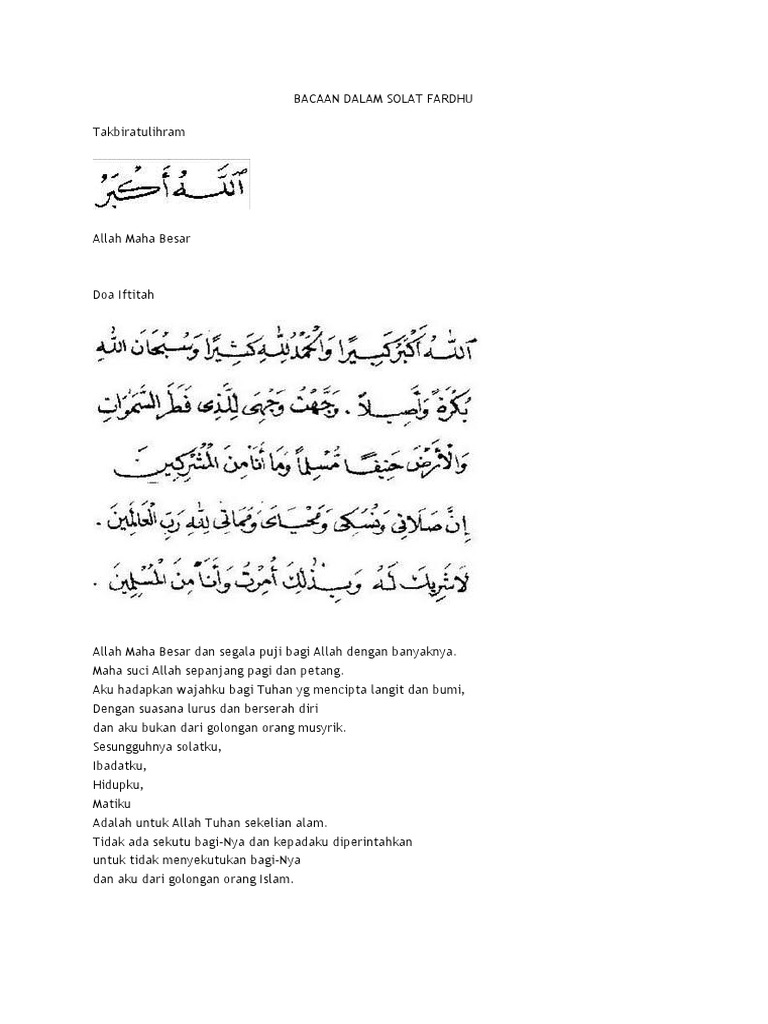 BACAAN DALAM SOLAT FARDHU
Takbiratulihram
اَللَّـهُ أَكْبَرُ
Allah Maha Besar
Doa Iftitah
اَللّٰهُ أَكْبَرُ كَبِيرًا وَالْحَمْدُ لِلّٰهِ كَثِيرًا وَسُبْحَانَ اللّٰهِ
بُكْرَةً وَأَصِيلاً . وَجَّهْتُ وَجْهِيَ لِلَّذِى فَطَرَ السَّمٰوَاتِ
وَالْأَرْضَ حَنِيفًا مُّسْلِماً وَمَا أَنَا مِنَ الْمُشْرِكِينَ
إِنَّ صَلَاتِى وَنُسُكِى وَمَحْيَاىَ وَمَمَاتِى لِلّٰهِ رَبِّ الْعَالَمِينَ .
لَا شَرِيكَ لَهُ وَبِذٰلِكَ أُمِرْتُ وَأَنَا مِنَ الْمُسْلِمِينَ .
Allah Maha Besar dan segala puji bagi Allah dengan banyaknya.
Maha suci Allah sepanjang pagi dan petang.
Aku hadapkan wajahku bagi Tuhan yg mencipta langit dan bumi,
Dengan suasana lurus dan berserah diri
dan aku bukan dari golongan orang musyrik.
Sesungguhnya solatku,
Ibadatku,
Hidupku,
Matiku
Adalah untuk Allah Tuhan sekelian alam.
Tidak ada sekutu bagi-Nya dan kepadaku diperintahkan
untuk tidak menyekutukan bagi-Nya
dan aku dari golongan orang Islam.